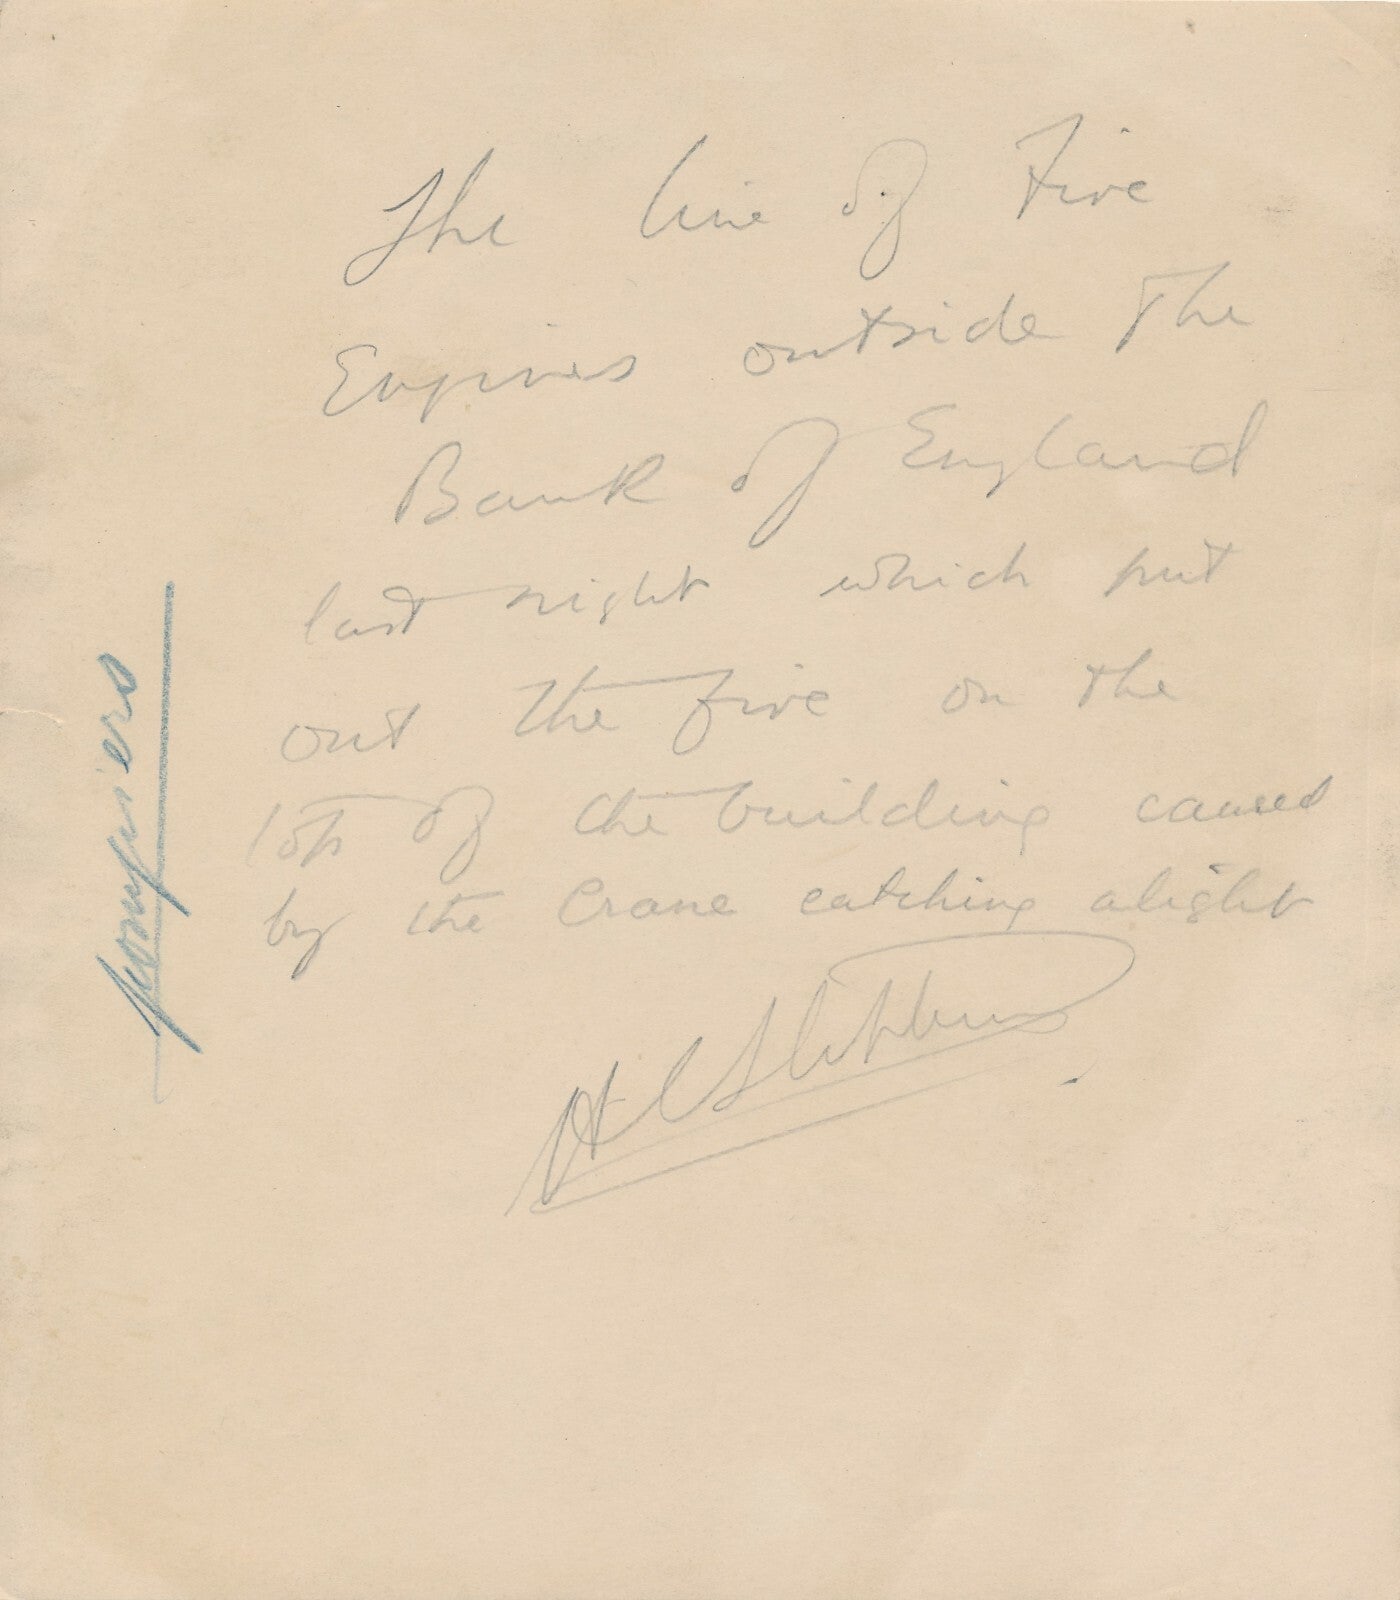 The line of Fire
Engines outside The
Bank of England
last night which put
out the fire on the
top of the building caused
by the Crane catching alight
pompiers